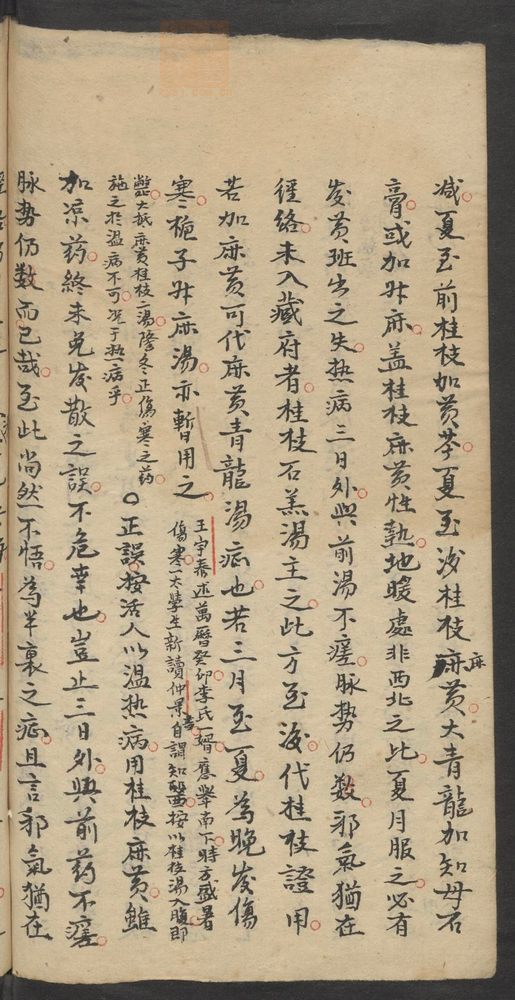 减夏至前桂枝加黄芩夏至後桂枝麻黄大青龍加知母石
膏或加升麻盖桂枝麻黄性熱地暖處非西北之比夏月服之必有
發黄班出之失熱病三日外與前湯不瘥脉势仍数邪氣猶在
徑絡未入藏府者桂枝石羔湯主之此方至後代桂枝證用
若加麻黄可代麻黄青龍湯症也若三月至夏為晚發傷
寒梔子升麻湯亦暫用之
王宇泰述萬曆癸卯李氏一壻應舉南下時方盛暑
傷寒一太學生新讀仲景書自謂知醫投以桂枝湯入腹即
斃大抵麻黄桂枝湯隆冬正傷寒之药
施之於温病不可况于热病乎
正誤按活人以温热病用桂枝麻黄雖
加凉药終未免發散之誤不危幸也豈止三日外與前药不瘥
脉势仍数而已哉至此尚然不悟為半裏之症且言邪氣猶在